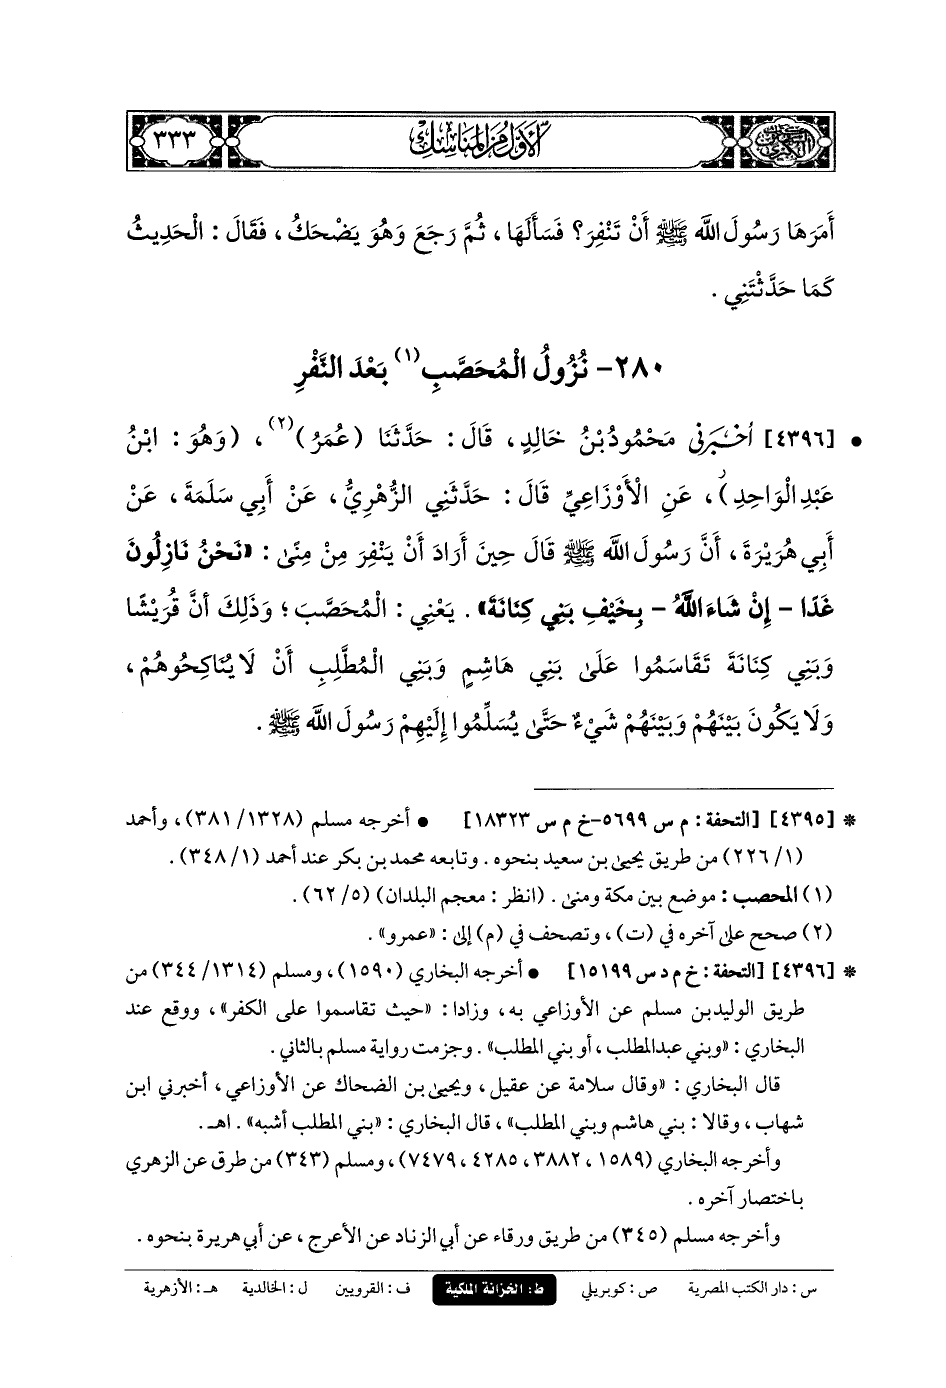 السنن الكبرى
الأول من المناسك
٣٣٣
أَمَرَهَا رَسُولَ اللَّه ﷺ أَنْ تَنْفِرَ؟ فَسَأَلَهَا، ثُمَّ رَجَعَ وَهُوَ يَضْحَكُ، فَقَالَ: الْحَدِيثُ
كَمَا حَدَّثْتَنِي.
٢٨٠- نُزُولُ الْمُحَصَّبِ(١) بَعْدَ النَّفْرِ
• [٤٣٩٦] أَخْبَرَنِي مَحْمُودُ بْنُ خَالِدٍ، قَالَ: حَدَّثَنَا (عُمَرُ)(٢)، (وَهُوَ: ابْنُ
عَبْدِ الْوَاحِدِ)، عَنِ الْأَوْزَاعِيِّ قَالَ: حَدَّثَنِي الزُّهْرِيُّ، عَنْ أَبِي سَلَمَةَ، عَنْ
أَبِي هُرَيْرَةَ، أَنَّ رَسُولَ اللَّه ﷺ قَالَ حِينَ أَرَادَ أَنْ يَنْفِرَ مِنْ مِنًى: «نَحْنُ نَازِلُونَ
غَدًا - إِنْ شَاءَ اللَّهُ - بِخَيْفِ بَنِي كِنَانَةَ». يَعْنِي: الْمُحَصَّبَ؛ وَذَلِكَ أَنَّ قُرَيْشًا
وَبَنِي كِنَانَةَ تَقَاسَمُوا عَلَى بَنِي هَاشِمٍ وَبَنِي الْمُطَّلِبِ أَنْ لَا يُنَاكِحُوهُمْ،
وَلَا يَكُونَ بَيْنَهُمْ وَبَيْنَهُمْ شَيْءٌ حَتَّى يُسَلِّمُوا إِلَيْهِمْ رَسُولَ اللَّه ﷺ.
* [٤٣٩٥] [التحفة: م س ٥٦٩٩-خ م س ١٨٣٢٣] • أخرجه مسلم (١٣٢٨/ ٣٨١)، وأحمد
(١/ ٢٢٦) من طريق يحيى بن سعيد بنحوه. وتابعه محمد بن بكر عند أحمد (١/ ٣٤٨).
(١) المحصب: موضع بين مكة ومنى. (انظر: معجم البلدان) (٥/ ٦٢).
(٢) صحح على آخره في (ت)، وتصحف في (م) إلى: «عمرو».
* [٤٣٩٦] [التحفة: خ م د س ١٥١٩٩] • أخرجه البخاري (١٥٩٠)، ومسلم (١٣١٤/ ٣٤٤) من
طريق الوليد بن مسلم عن الأوزاعي به، وزادا: «حيث تقاسموا على الكفر»، ووقع عند
البخاري: «وبني عبدالمطلب، أو بني المطلب». وجزمت رواية مسلم بالثاني.
قال البخاري: «وقال سلامة عن عقيل، ويحيى بن الضحاك عن الأوزاعي، أخبرني ابن
شهاب، وقالا: بني هاشم وبني المطلب»، قال البخاري: «بني المطلب أشبه». اهـ.
وأخرجه البخاري (١٥٨٩، ٣٨٨٢، ٤٢٨٥، ٧٤٧٩)، ومسلم (٣٤٣) من طرق عن الزهري
باختصار آخره.
وأخرجه مسلم (٣٤٥) من طريق ورقاء عن أبي الزناد عن الأعرج، عن أبي هريرة بنحوه.
س: دار الكتب المصرية ص: كوبريلي ط: الخزانة الملكية ف: القرويين ل: الخالدية هـ: الأزهرية